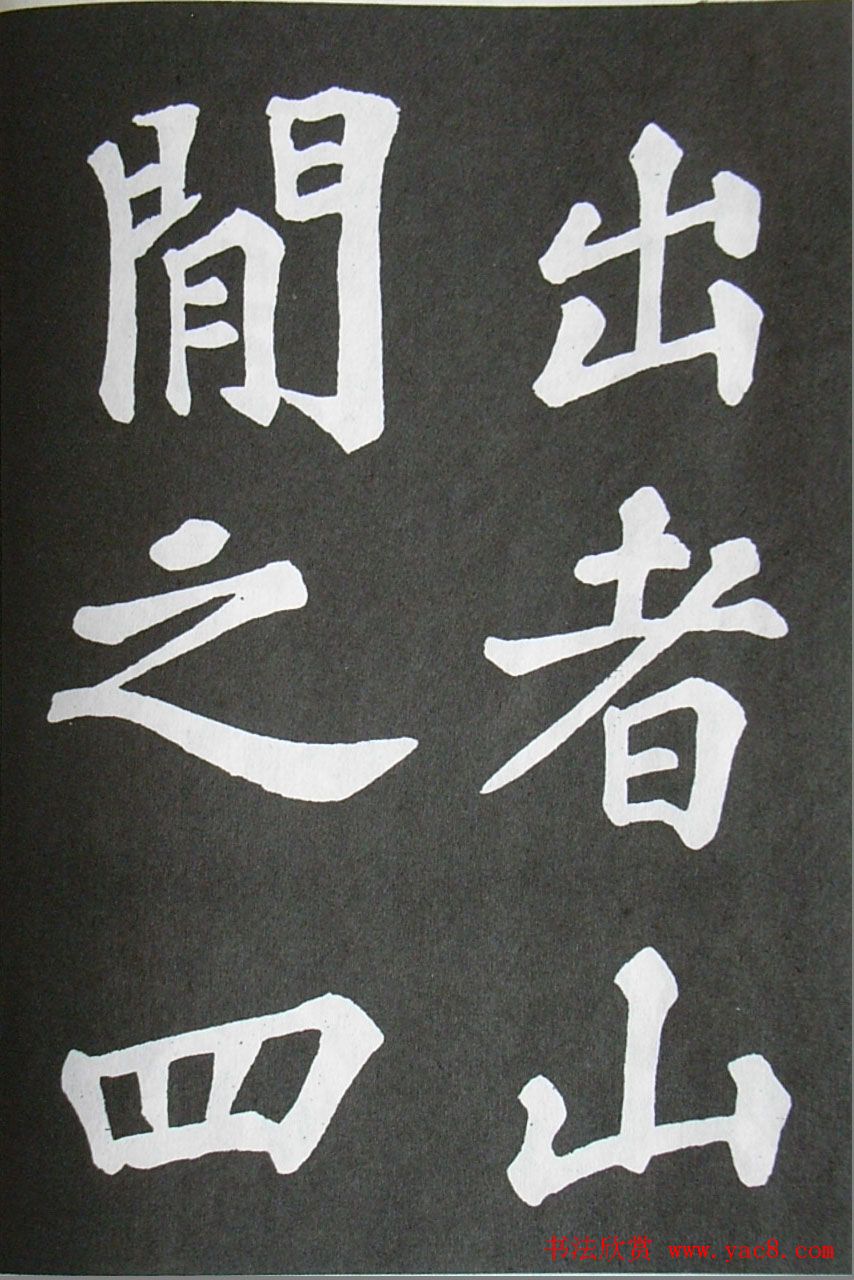 出者山
間之四
书法欣赏 www.yac8.com